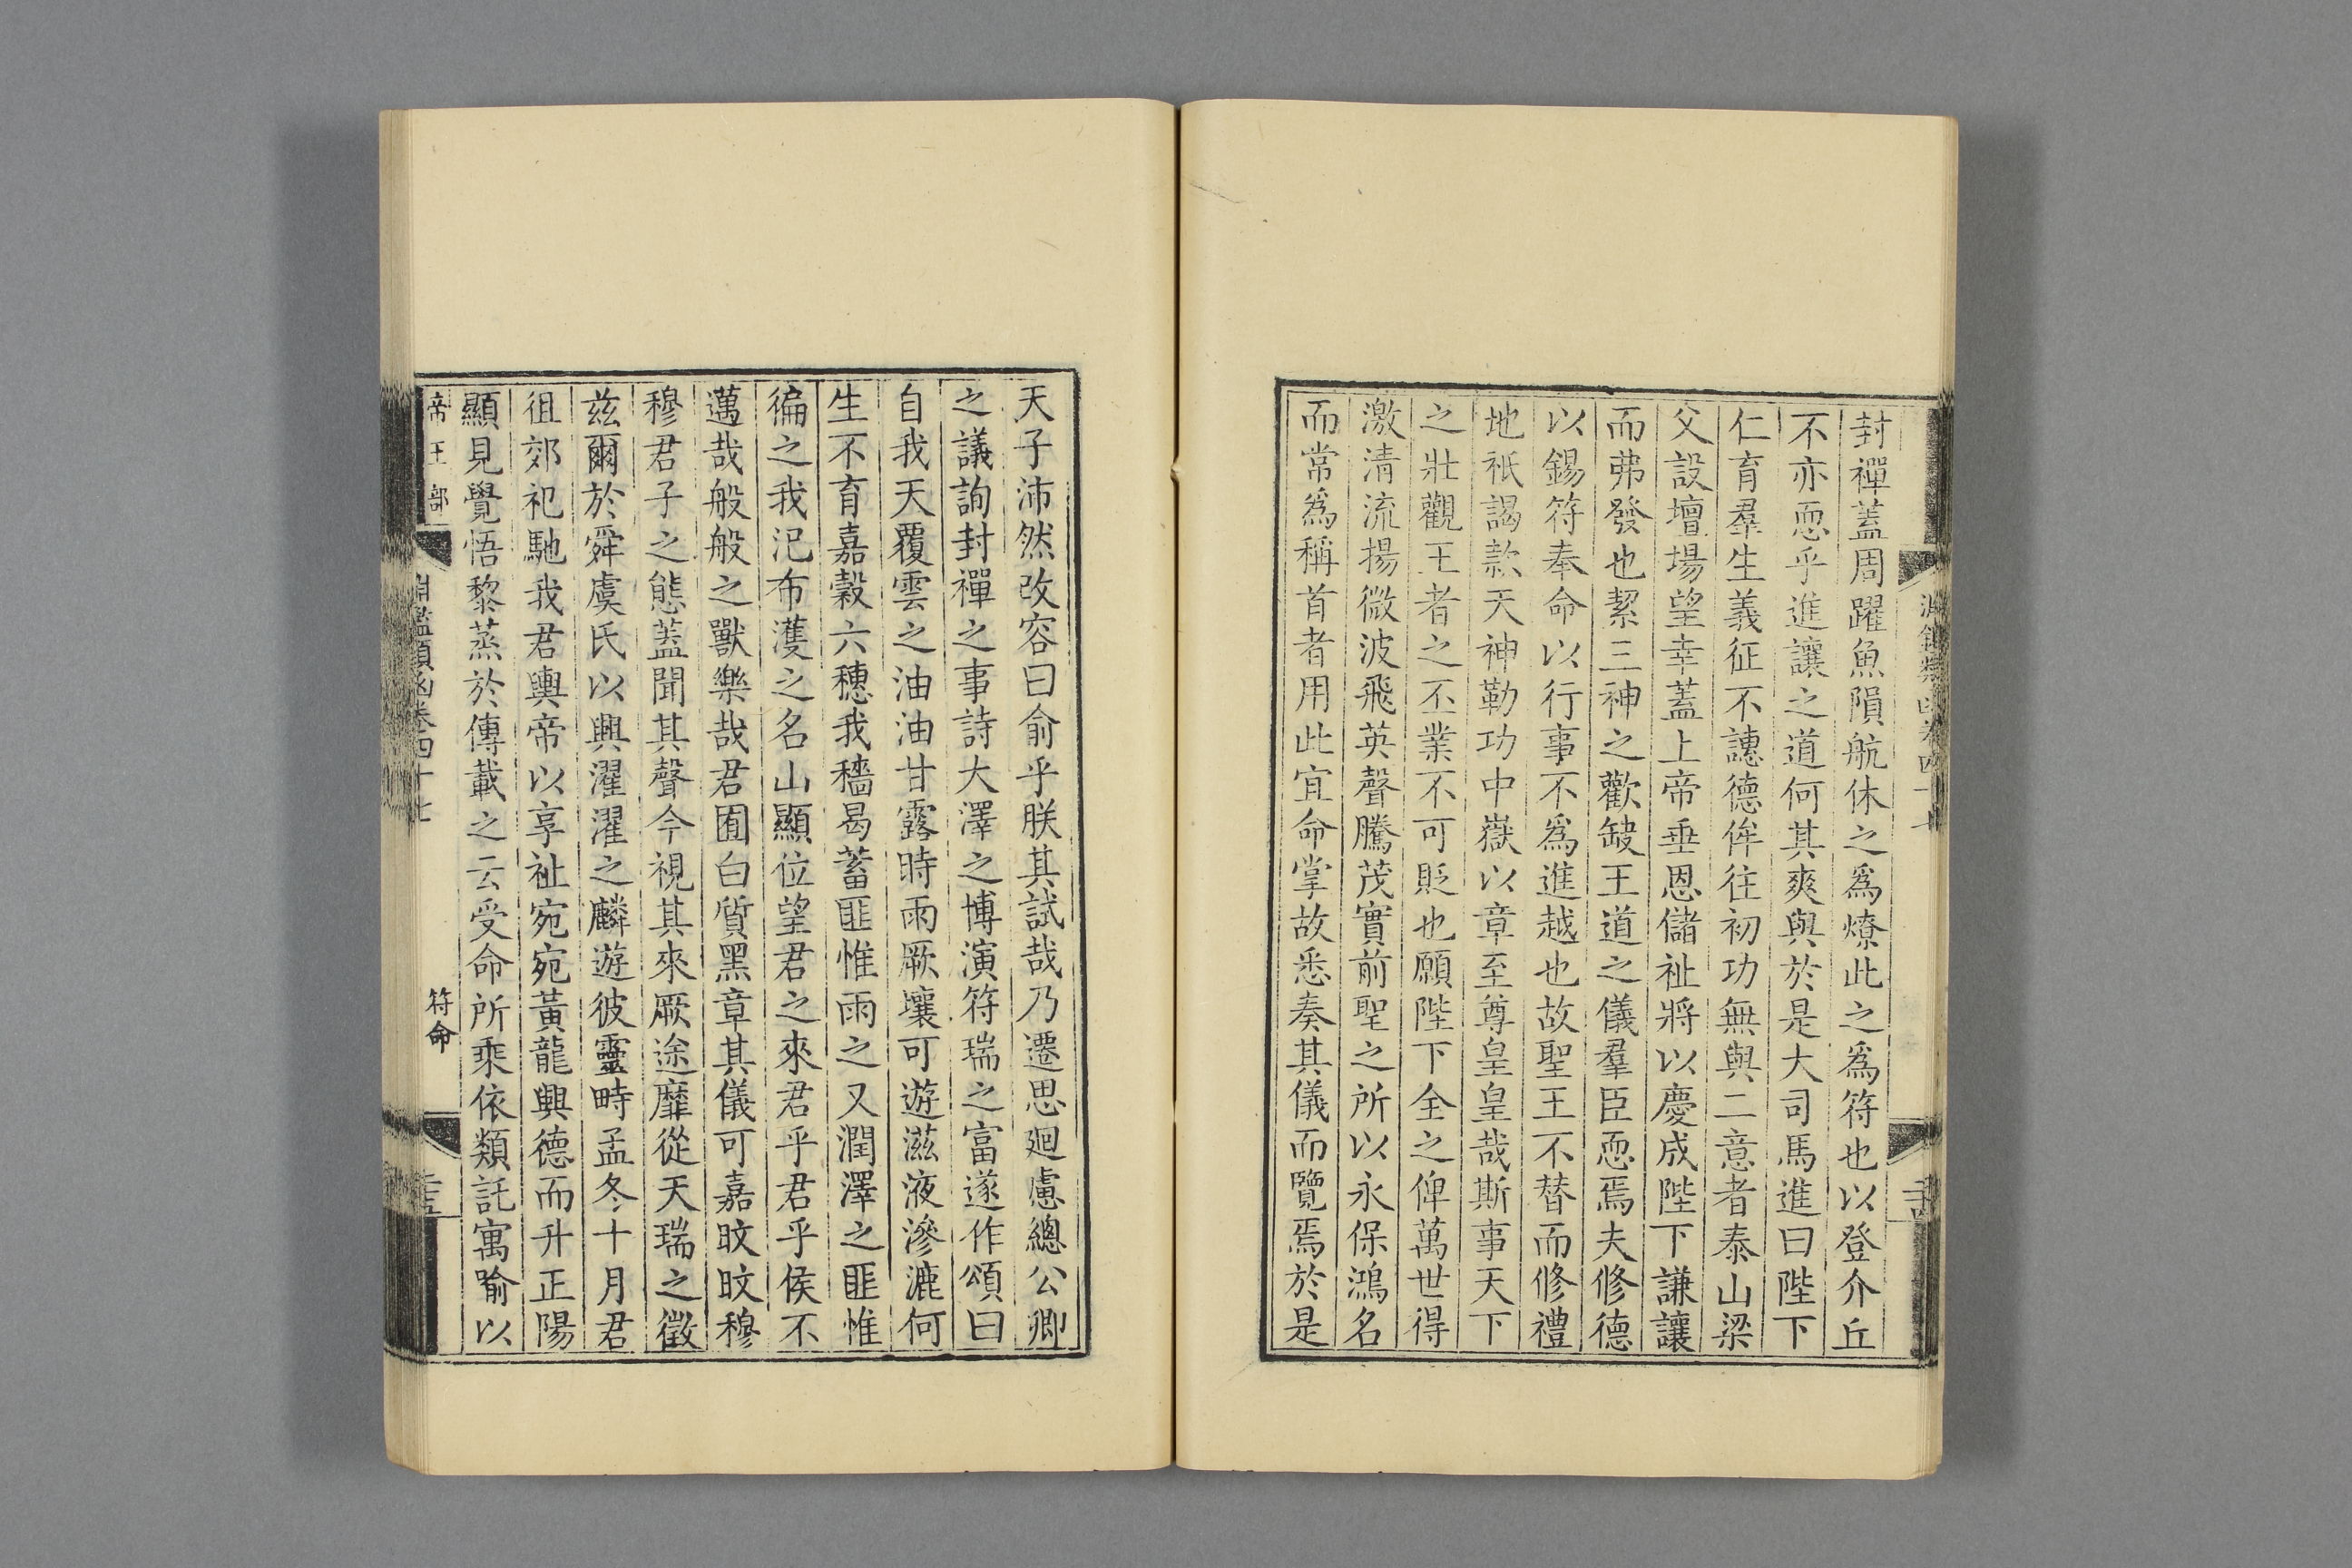 封禪蓋周躍魚隕航休之爲燎此之爲符也以登介丘
不亦恧乎進讓之道何其爽與於是大司馬進曰陛下
仁育羣生義征不譓德侔往初功無與二意者泰山梁
父設壇場望幸蓋上帝垂恩儲祉將以慶成陛下謙讓
而弗發也挈三神之歡缺王道之儀羣臣恧焉夫修德
以錫符奉命以行事不爲進越也故聖王不替而修禮
地祇謁款天神勒功中嶽以章至尊皇皇哉斯事天下
之壯觀王者之丕業不可貶也願陛下全之俾萬世得
激清流揚微波飛英聲騰茂實前聖之所以永保鴻名
而常爲稱首者用此宜命掌故悉奏其儀而覽焉於是
天子沛然改容曰俞乎朕其試哉乃遷思迴慮總公卿
之議詢封禪之事詩大澤之博演符瑞之富遂作頌曰
自我天覆雲之油油甘露時雨厥壤可遊滋液滲漉何
生不育嘉穀六穗我穡曷蓄匪惟雨之又潤澤之匪惟
徧之我汜布濩之名山顯位望君之來君乎君乎侯不
邁哉般般之獸樂哉君囿白質黑章其儀可嘉旼旼穆
穆君子之態蓋聞其聲今視其來厥途靡從天瑞之徵
茲爾於舜虞氏以興濯濯之麟遊彼靈畤孟冬十月君
徂郊祀馳我君輿帝以享祉宛宛黃龍興德而升正陽
顯見覺悟黎蒸於傳載之云受命所乘依類託寓喻以
帝王部
淵鑑類函卷四十七
符命